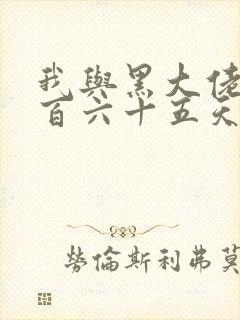 我與黑大佬
百六十五天
勞倫斯利弗莫